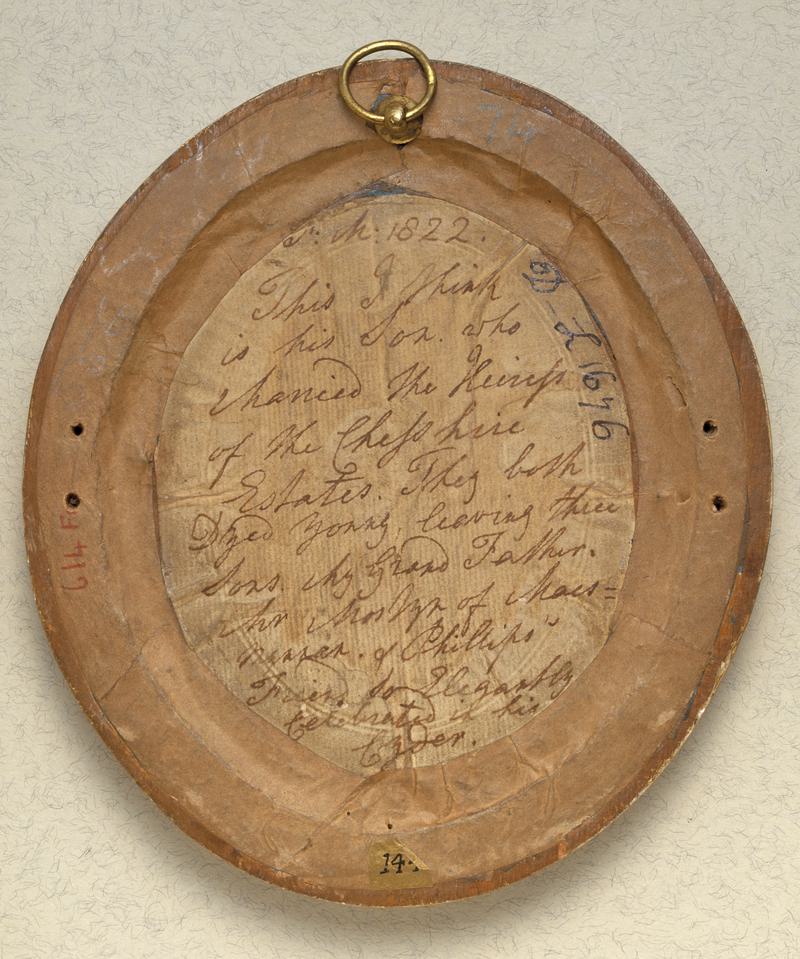 M: 1822.
This I think
is his Son. who
Married the Heiress
of the Chesshire
Estates. They both
Dyed young, leaving three
Sons. My Grand Father.
Mr Mostyn of Maes=
nannan. & Phillips"
Friend so Elegantly
Celebrated in his
Cyder.
D_L 1676
614
14